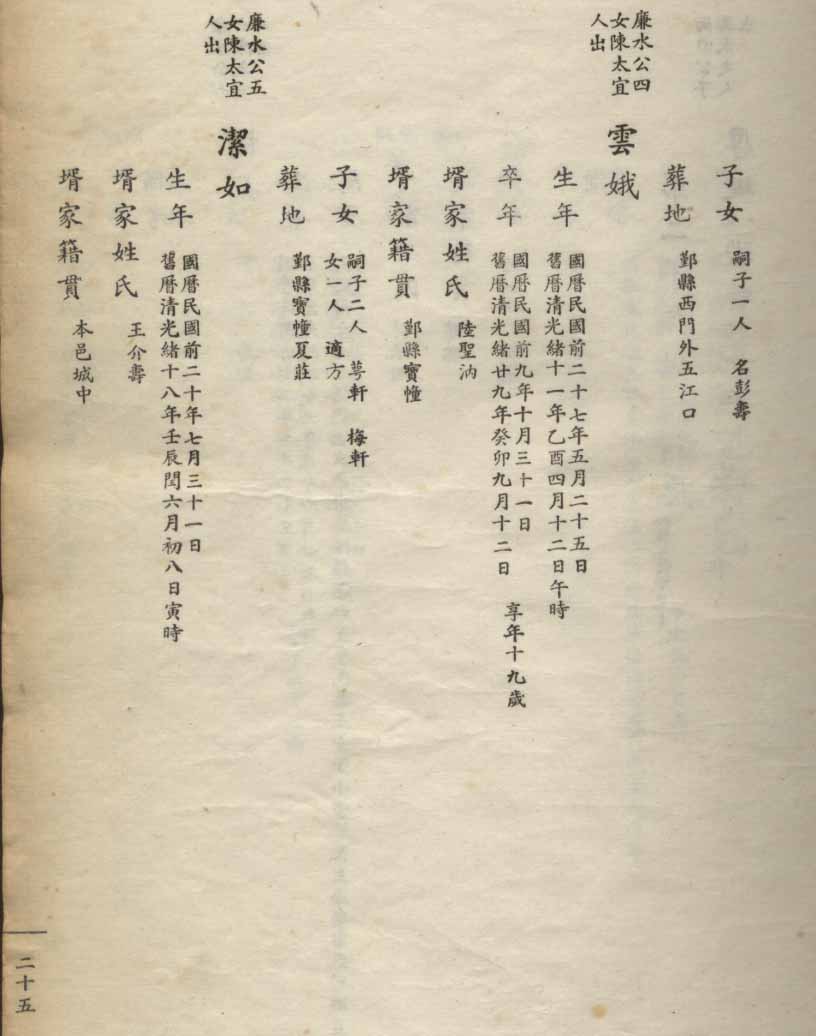 子女
嗣子一人 名彭壽
葬地
鄞縣西門外五江口
廉水公四
女陳太宜
人出
雲娥
生年
國曆民國前二十七年五月二十五日
舊曆清光緒十一年乙酉四月十二日午時
卒年
國曆民國前九年十月三十一日
舊曆清光緒廿九年癸卯九月十二日 享年十九歲
壻家姓氏
陸聖沩
壻家籍貫
鄞縣寶幢
子女
嗣子二人 萼軒 梅軒
女一人 適方
葬地
鄞縣寶幢夏莊
廉水公五
女陳太宜
人出
潔如
生年
國曆民國前二十年七月三十一日
舊曆清光緒十八年壬辰閏六月初八日寅時
壻家姓氏
王介壽
壻家籍貫
本邑城中
二十五